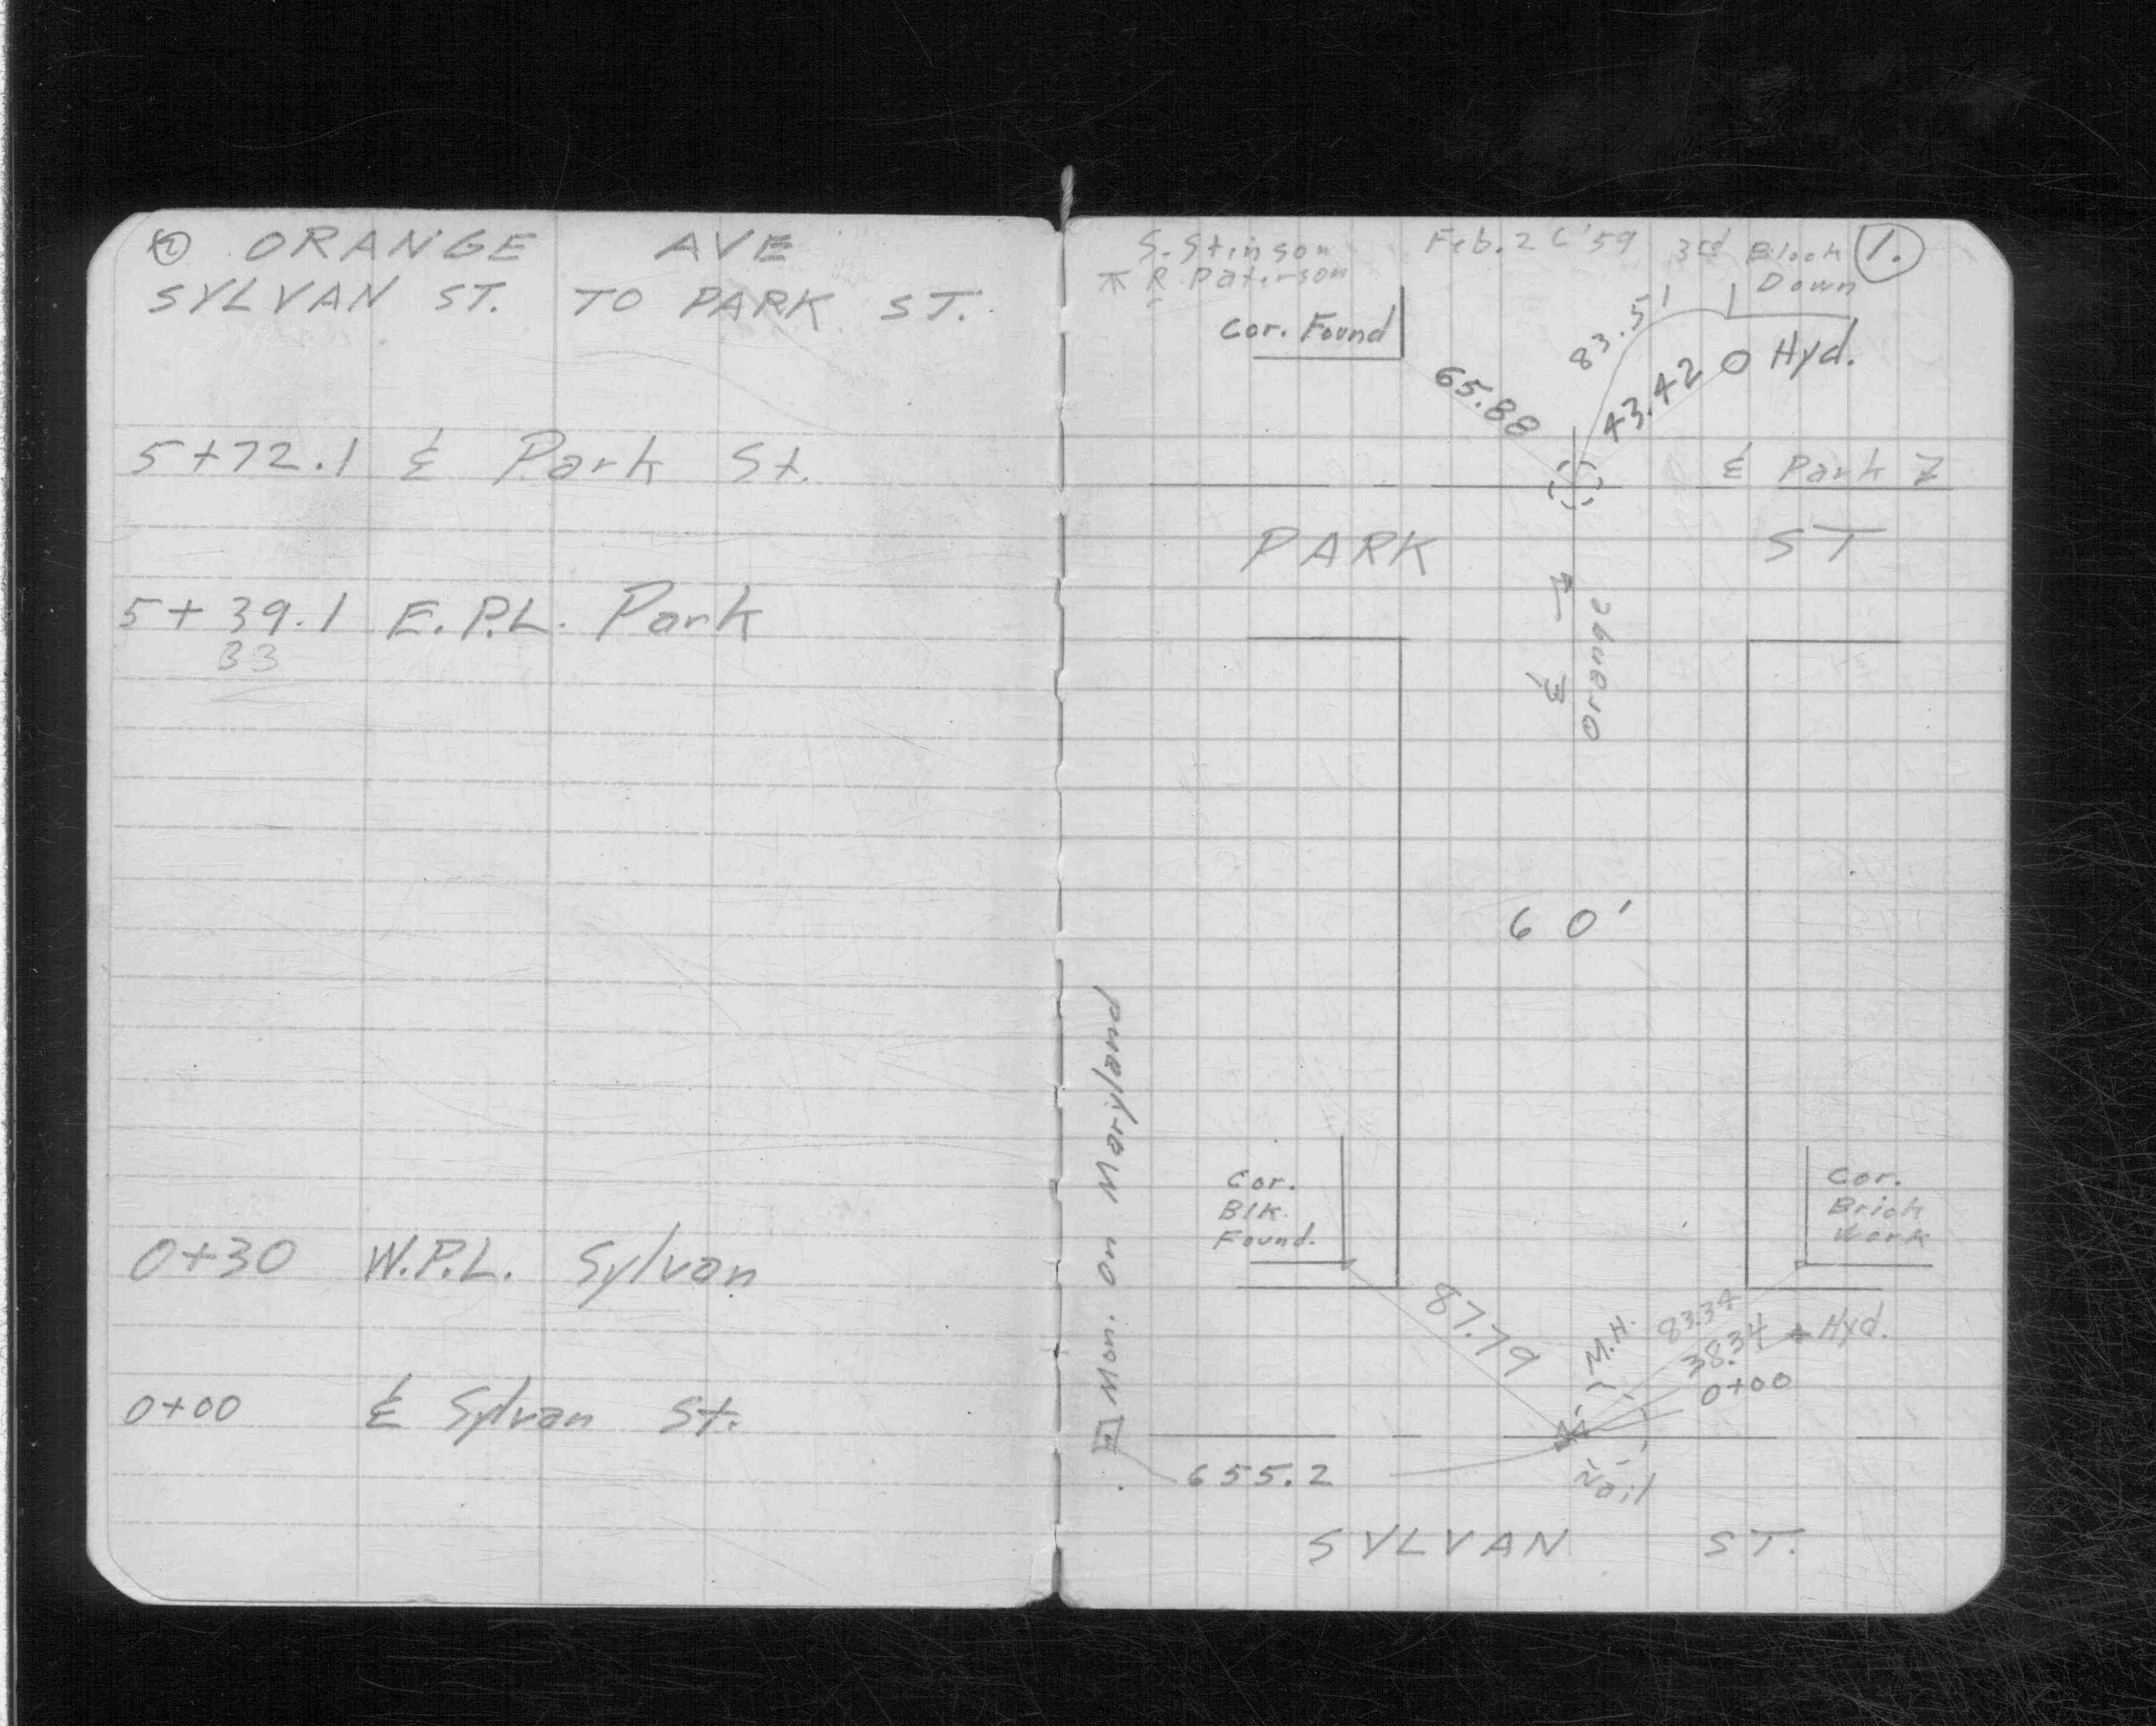 ℄ ORANGE AVE
SYLVAN ST. TO PARK ST.
5+72.1 ℄ Park St.
5+39.1 E.P.L. Park
33
0+30 W.P.L. Sylvan
0+00 ℄ Sylvan St.
S. Stinson
⊼ R. Paterson
Feb. 26 '59
3rd Block
Down
1.
Cor. Found
83.51
65.88
43.42
Hyd.
℄ Park
PARK ST
℄
Orange
60'
Mon. on Maryland
Cor.
Blk.
Found.
Cor.
Brick
Work
87.79
M.H.
83.34
38.34
Hyd.
0+00
655.2
Nail
SYLVAN ST.